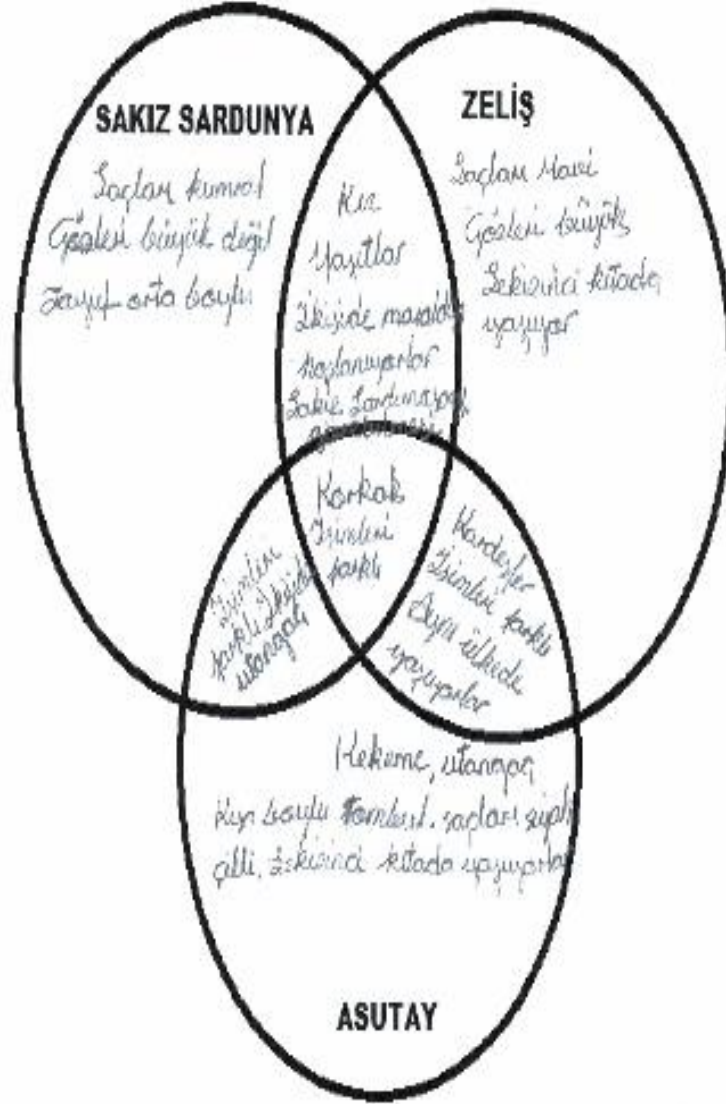 SAKIZ SARDUNYA
Saçları kumral
Gözleri büyük değil
zayıf orta boylu
ZELİŞ
Saçları Mavi
Gözleri büyük
Sekizinci kıtada
yaşıyor
Kız
Yaşıtlar
İkiside masaldan
hoşlanıyorlar
Sakız Sardunya
Korkak
İsimleri
farklı
İsimleri
farklı İkiside
utangaç
Kardeşler
İsimleri farklı
Aynı ülkede
yaşıyorlar
Kekeme, utangaç
Kısa boylu tombul. saçları siyah
çilli. Sekizinci kıtada yaşıyorlar
ASUTAY